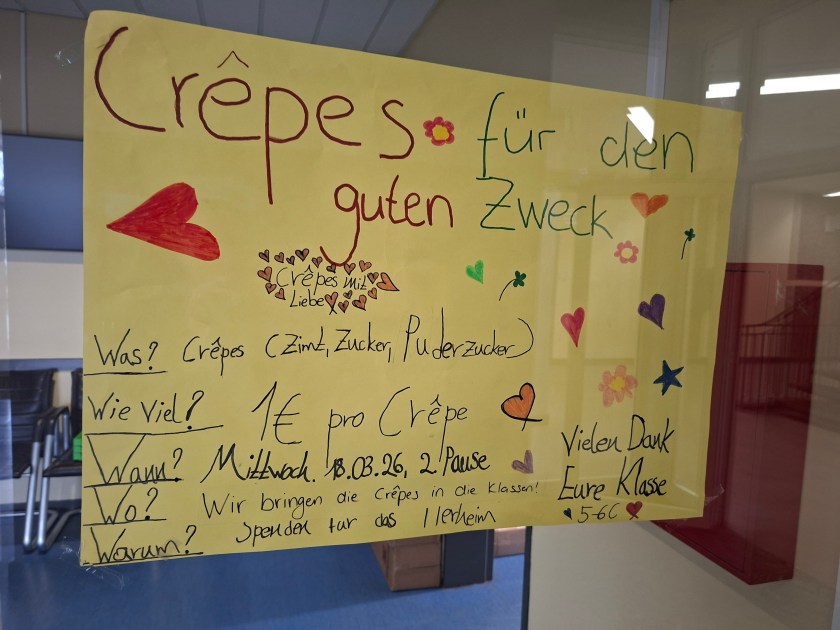 Crêpes für den
guten Zweck
Crêpes mit
Liebe
Was? Crêpes (Zimt, Zucker, Puderzucker)
Wie viel? 1€ pro Crêpe
Wann? Mittwoch. 18.03.26, 2. Pause
Wo? Wir bringen die Crêpes in die Klassen!
Warum? Spenden für das Tierheim
Vielen Dank
Eure Klasse
5-6C